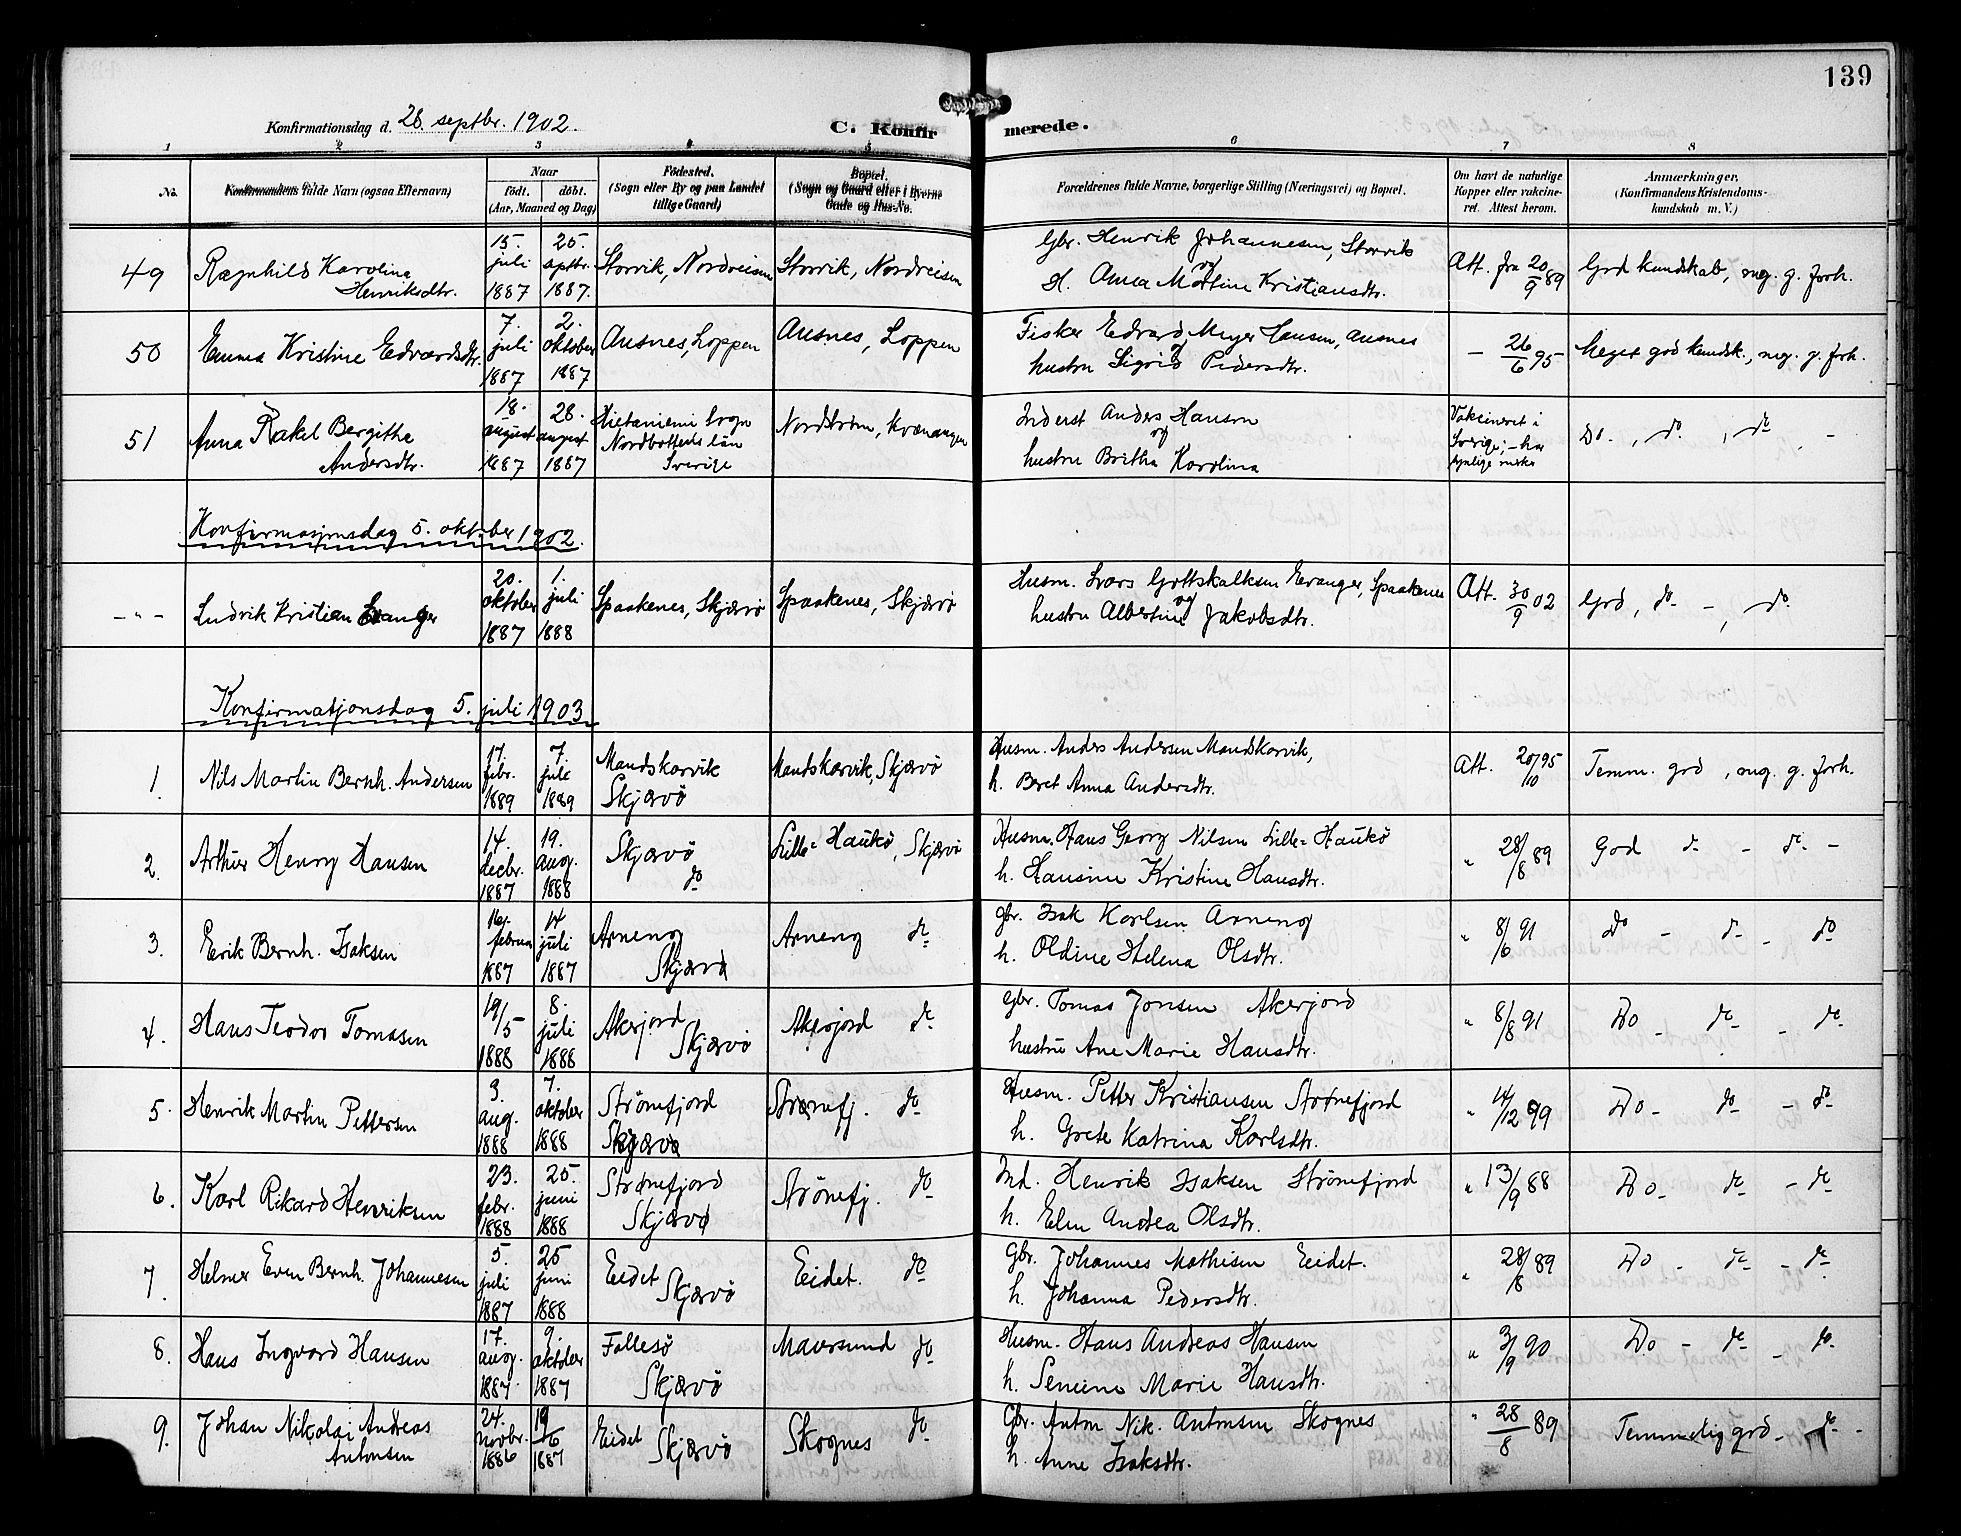 139
Konfirmationsdag d. 28. septbr. 1902.
C. Konfirmerede.
1 2 3 4 5 6 7 8
No.
Konfirmandens fulde Navn (ogsaa Efternavn)
Naar
født. døbt.
(Aar, Maaned og Dag)
Fødested.
(Sogn eller By og paa Landet
tillige Gaard)
Bopæl.
(Sogn og Gaard eller i Byerne
Gade og Hus-No.
Forældrenes fulde Navne, borgerlige Stilling (Næringsvei) og Bopæl.
Om havt de naturlige
Kopper eller vakcine-
ret. Attest herom.
Anmærkninger.
(Konfirmandens Kristendoms-
kundskab m. V.)
49 Ragnhild Karolina Henriksdtr.
15. juli 1887
25. sptbr. 1887.
Storvik, Nordreisen
Storvik, Nordreisen
Gbr. Henrik Johannesen, Storvik
og
H. Anna Martine Kristiansdtr.
Att. fra 20/9 89
God kundskab, meg. g. forh.
50 Emma Kristine Edvardsdtr.
7. juli 1887
2. oktober 1887
Ausnes, Loppen
Ausnes, Loppen
Fisker Edvard Meyer Hansen, Ausnes
og
hustru Sigrid Pedersdtr.
— 26/6 95
Meget god kundsk., meg. g. forh.
51 Anna Rakel Bergithe Andersdtr.
18. august 1887
28. august 1887
Hietaniemi Sogn
Nordbottens län
Sverige
Nordstrøm, Kvænangen
Inderst Anders Hanson
og
hustru Britha Karolina
Vakcineret i
Sverige; – har
synlige mærker
Do. , do , do -
Konfirmasjonsdag 5. oktober 1902.
– " – Ludvik Kristian Evanger
20. oktober 1887
1. juli 1888
Spaakenes, Skjærvø
Spaakenes, Skjærvø
Husm. Lars Gottskalksen Evanger, Spaakenes
og
hustru Albertine Jakobsdtr.
Att. 30/9 02
God, do - , do
Konfirmatjonsdag 5. juli 1903
1. Nils Martin Bernh. Andersen
17. febr. 1889
7. juli 1889
Mandskarvik
Skjærvø
Mandskarvik, Skjærvø
Husm. Anders Andersen Mandskarvik,
h. Beret Anna Andersdtr.
Att. 20/10 95
Temm. god, meg. g. forh.
2. Arthur Henry Hansen
14. decbr. 1887
19. aug. 1888
Skjærvø
do
Lille-Haukø, Skjærvø
Husm. Hans Georg Nilsen Lille-Haukø
h. Hansine Kristine Hansdtr.
" 28/8 89
God do - do -
3. Erik Bernh. Isaksen
16. februar 1887
14 juli 1887
Arneng
Skjærvø
Arneng do
gbr. Isak Karlsen Arneng
h. Oldine Helena Olsdtr.
" 8/6 91
do - do - do
4. Hans Teodor Tomasen
19/5 1888
8. juli 1888
Akerjord
Skjærvø
Akerjord do
gbr. Tomas Jonsen Akerjord
hustru Ane Marie Hansdtr.
" 8/8 91
Do - do - do
5. Henrik Martin Pettersen
3. aug. 1888
7. oktober 1888
Strømefjord
Skjærvø
Strømefj. do
Husm. Petter Kristiansen Strømefjord
h. Grete Katrina Karlsdtr.
" 14/12 99
Do - do - do
6. Karl Rikard Henriksen
23. febr. 1888
25. juni 1888
Strømefjord
Skjærvø
Strømefj. do
Ind. Henrik Isaksen Strømefjord
h. Elen Andrea Olsdtr.
" 13/9 88
Do - do - do
7. Helmer Even Bernh. Johannesen
5. juli 1887
25 juni 1888
Eidet
Skjærvø
Eidet. do
Gbr. Johannes Mathisen Eidet.
h. Johanna Pedersdtr.
" 28/8 89
Do - do - do
8. Hans Ingvard Hansen
17. aug. 1887
9. oktober 1887
Follesø
Skjærvø
Maursund do
Husm. Hans Andreas Hansen
h. Semine Marie Hansdtr.
" 3/9 90
Do - do - do
9. Johan Nikolai Andreas Antonsen
24. novbr. 1886
19/6 1887
Eidet
Skjærvø
Skognes do
Gbr. Anton Nik. Antonsen Skognes
h. Anne Isaksdtr.
" 28/8 89
Temmelig god - do -